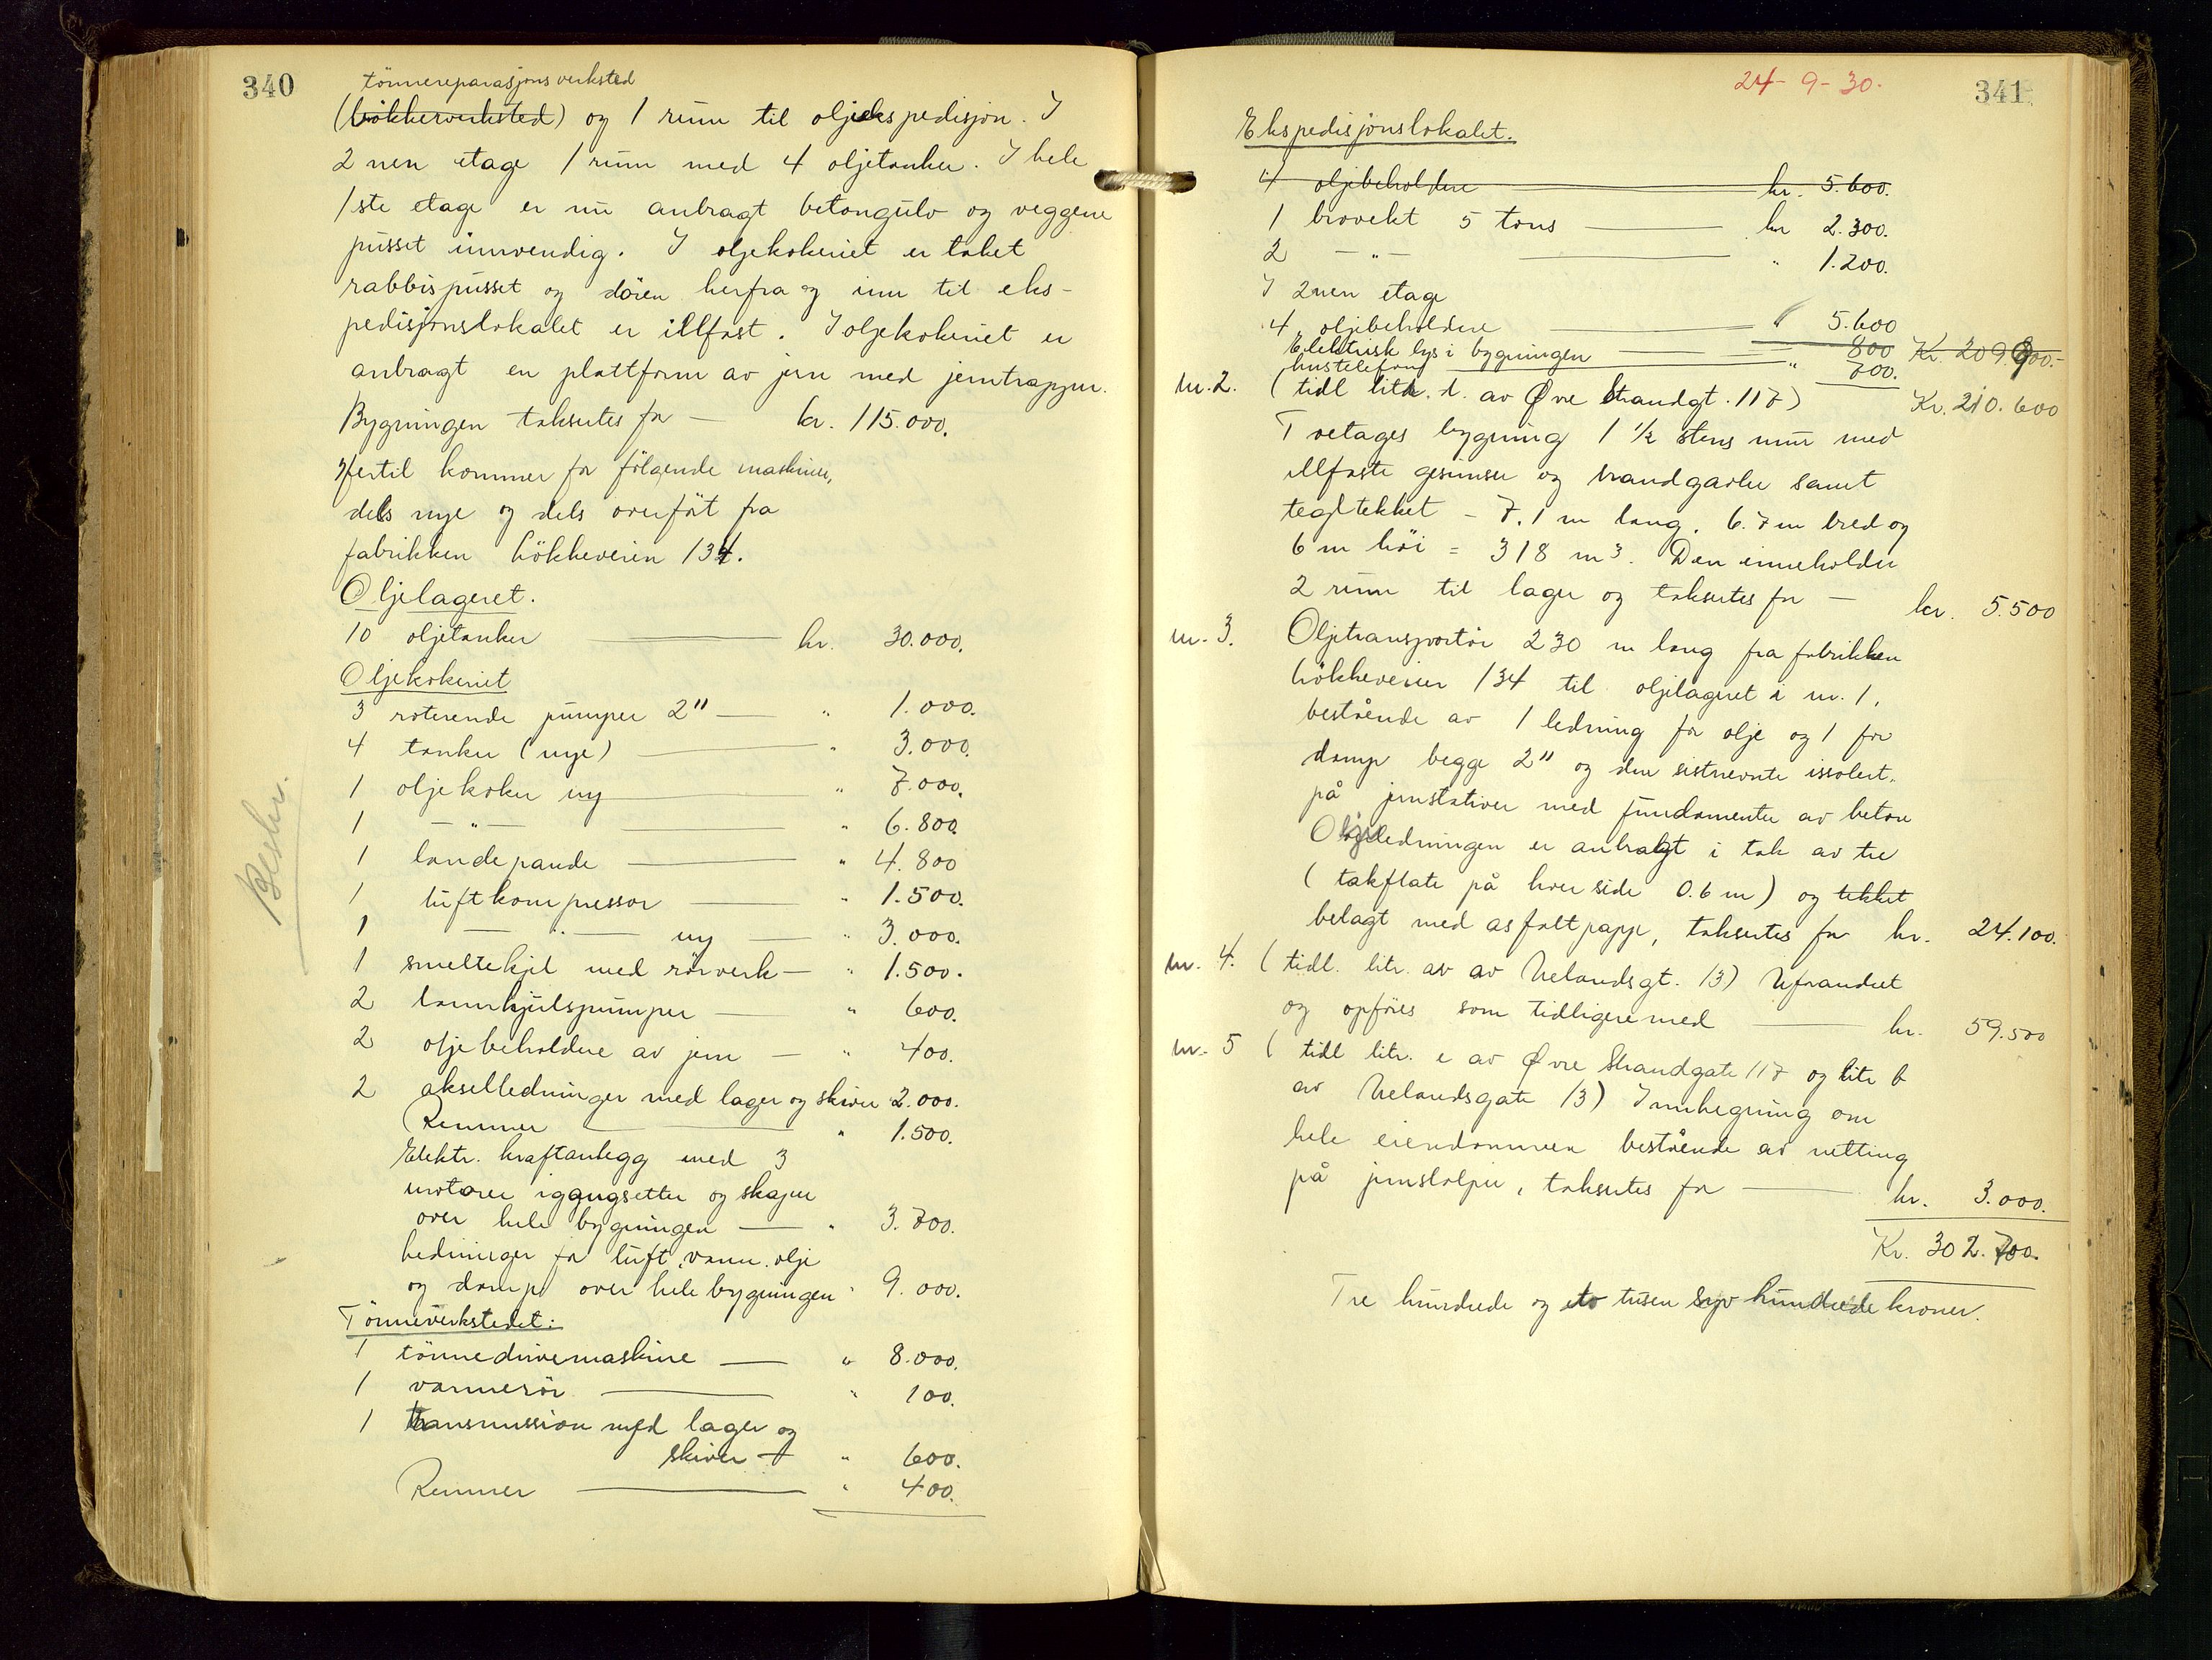 340
tönnereparasjonsverksted
(bökkerverksted) og 1 rum til oljeekspedisjon. I
2nen etage 1 rum med 4 oljetanker. I hele
1ste etage er nu anbragt betongulv og veggene
pusset innvendig. I oljekokeriet er taket
rabbispusset og dören herfra og inn til eks-
pedisjonslokalet er illfast. I oljekokeriet er
anbragt en plattform av jern med jerntrapper.
Bygningen takseres for — kr. 115.000.
Hertil kommer for fölgende maskiner,
dels nye og dels overfört fra
fabrikken Lökkeveien 134.
Oljelageret.
10 oljetanker kr. 30.000.
Oljekokeriet
3 roterende pumper 2" — " 1.000.
4 tanker (nye) " 3.000.
1 oljekoker ny " 7.000.
1 — " — " 6.800.
1 landepande " 4.800
1 luftkompressor " 1.500.
1 — " — ny — " 3.000.
1 smeltekjel med rörverk — " 1.500.
2 tannhjulspumper — " 600.
2 oljebeholdere av jern — " 400.
2 akselledninger med lager og skiver " 2.000.
Remmer " 1.500.
Elektr. kraftanlegg med 3
motorer igangsetter og skaper
over hele bygningen — " 3.700.
Ledninger for luft, vann, olje
og damp over hele bygningen " 9.000.
Tönneverkstedet:
1 tönnedrivemaskine — " 8.000.
1 vannerör " 100.
1 transmission med lager og
skiver — " 600.
Remmer " 400.
Beskr.
24-9-30.
341
Ekspedisjonslokalet.
4 oljebeholdere kr. 5.600.
1 brovekt 5 tons kr 2.300.
2 — " — " 1.200.
I 2nen etage
4 oljebeholdere " 5.600
Elektrisk lys i bygningen 800 Kr. 209.900.-
hustelefonf " 700.
nr. 2. (tidl litr. d. av Øvre Strandgt. 117) Kr. 210.600
Toetages bygning 1 1/2 stens mur med
illfaste gesimser og brandgavler samt
tegltekket - 7.1 m lang, 6.7 m bred og
6 m höi = 318 m3. Den inneholder
2 rum til lager og takseres for — kr. 5.500
nr. 3. Oljetransportör 230 m lang fra fabrikken
Lökkeveien 134 til oljelageret i nr. 1,
bestående av 1 ledning for olje og 1 for
damp begge 2" og den sistnevnte issolert.
på jernstativer med fundamenter av beton
Oljeledningen er anbragt i tak av tre
(takflate på hver side 0.6 m) og tekket
belagt med asfaltpapp, takseres for kr. 24.100.
nr. 4. (tidl. litr. av av Uelandsgt. 13) Uforandret
og opföres som tidligere med kr. 59.500
nr. 5 (tidl litr. e av Øvre Strandgate 117 og litr b
av Uelandsgate 13) Innhegning om
hele eiendommen bestående av netting
på jernstolper, takseres for kr. 3.000.
Kr. 302.700.
Tre hundrede og to tusen syv hundrede kroner.